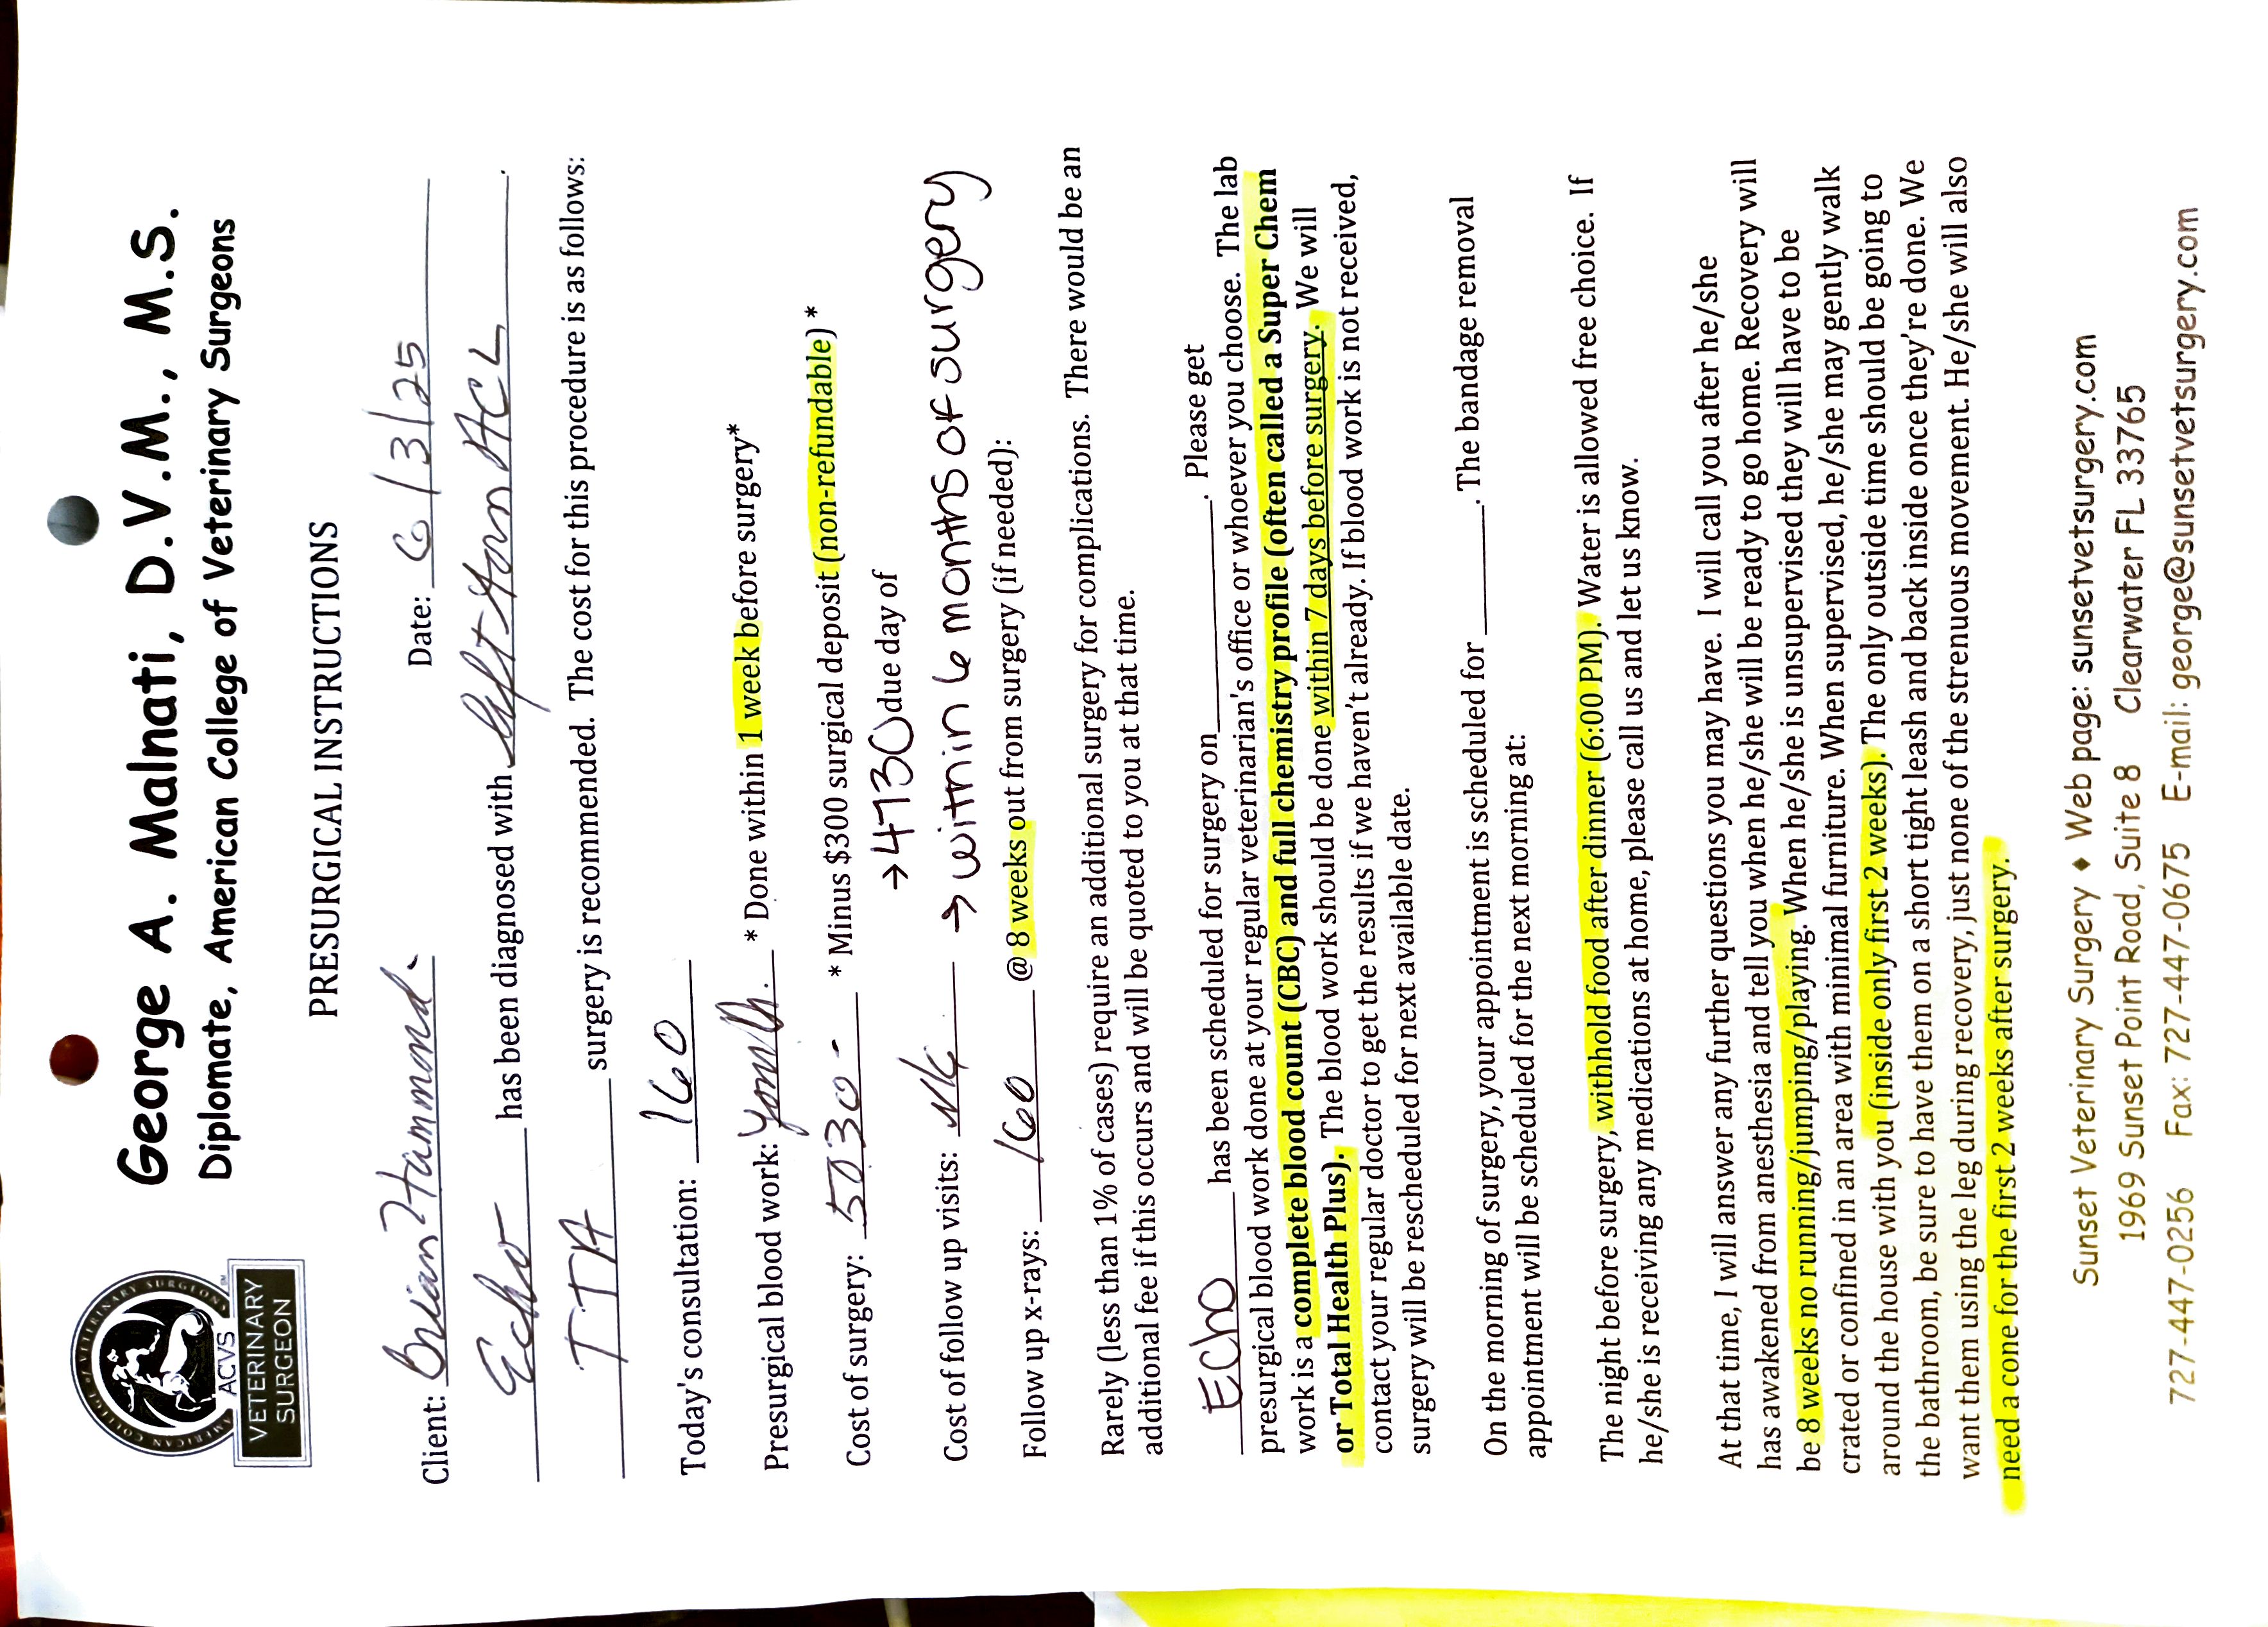 George A. Malnati, D.V.M., M.S.
Diplomate, American College of Veterinary Surgeons
AMERICAN COLLEGE of VETERINARY SURGEONS
ACVS
VETERINARY
SURGEON
PRESURGICAL INSTRUCTIONS
Client: Brian Hammond. Date: 6/3/25
Echo has been diagnosed with left torn ACL.
TTA surgery is recommended. The cost for this procedure is as follows:
Today's consultation: 160
Presurgical blood work: * Done within 1 week before surgery*
Cost of surgery: 5030- * Minus $300 surgical deposit (non-refundable) *
→4730 due day of
Cost of follow up visits: N/C → within 6 months of surgery
Follow up x-rays: 160 @ 8 weeks out from surgery (if needed):
Rarely (less than 1% of cases) require an additional surgery for complications. There would be an
additional fee if this occurs and will be quoted to you at that time.
Echo has been scheduled for surgery on________. Please get
presurgical blood work done at your regular veterinarian's office or whoever you choose. The lab
work is a complete blood count (CBC) and full chemistry profile (often called a Super Chem
or Total Health Plus). The blood work should be done within 7 days before surgery. We will
contact your regular doctor to get the results if we haven't already. If blood work is not received,
surgery will be rescheduled for next available date.
On the morning of surgery, your appointment is scheduled for ________. The bandage removal
appointment will be scheduled for the next morning at:
The night before surgery, withhold food after dinner (6:00 PM). Water is allowed free choice. If
he/she is receiving any medications at home, please call us and let us know.
At that time, I will answer any further questions you may have. I will call you after he/she
has awakened from anesthesia and tell you when he/she will be ready to go home. Recovery will
be 8 weeks no running/jumping/playing. When he/she is unsupervised they will have to be
crated or confined in an area with minimal furniture. When supervised, he/she may gently walk
around the house with you (inside only first 2 weeks). The only outside time should be going to
the bathroom, be sure to have them on a short tight leash and back inside once they're done. We
want them using the leg during recovery, just none of the strenuous movement. He/she will also
need a cone for the first 2 weeks after surgery.
Sunset Veterinary Surgery ♦ Web page: sunsetvetsurgery.com
1969 Sunset Point Road, Suite 8 Clearwater FL 33765
727-447-0256 Fax: 727-447-0675 E-mail: george@sunsetvetsurgery.com